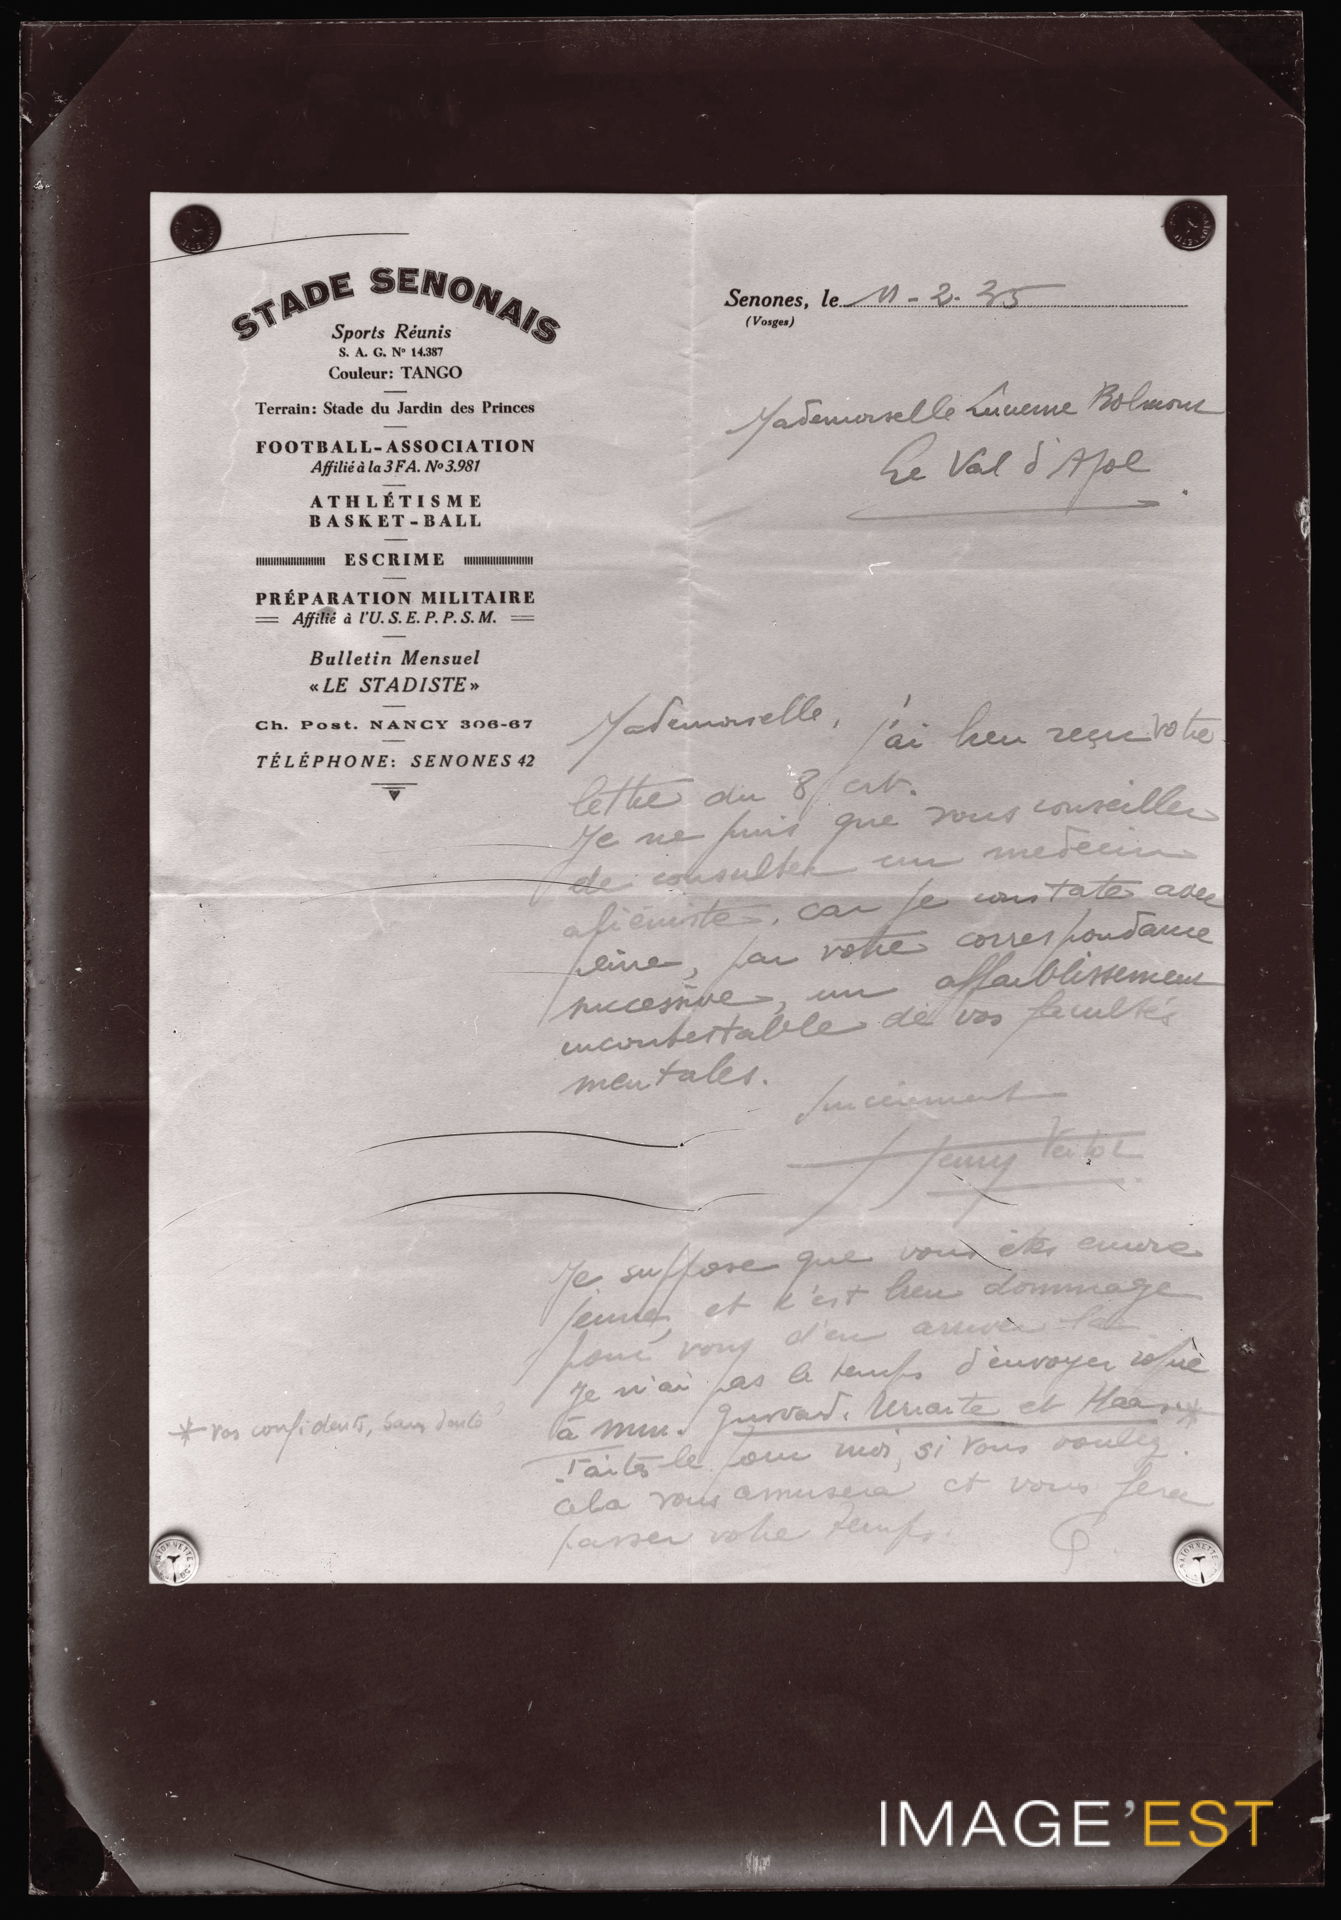 STADE SENONAIS
Sports Réunis
S. A. G. Nº 14.387
Couleur: TANGO
Terrain: Stade du Jardin des Princes
FOOTBALL-ASSOCIATION
Affilié à la 3 F A. Nº 3.981
ATHLÉTISME
BASKET-BALL
ESCRIME
PRÉPARATION MILITAIRE
Affilié à l'U. S. E. P. P. S. M.
Bulletin Mensuel
«LE STADISTE»
Ch. Post. NANCY 306-67
TÉLÉPHONE: SENONES 42
Senones, le 11-2-35
(Vosges)
Mademoiselle Lucienne Bolmont
Le Val d'Ajol
Mademoiselle, j'ai bien reçu votre
lettre du 8 crt.
Je ne puis que vous conseiller
de consulter un médecin
aliéniste, car je constate avec
peine, par votre correspondance
successive, un affaiblissement
incontestable de vos facultés
mentales.
Sincèrement
Henry
Je suppose que vous êtes encore
jeune, et c'est bien dommage
pour vous d'en arriver là
Je n'ai pas le temps d'envoyer copie
à MM. et Haas *
Faites-le pour moi, si vous voulez.
cela vous amusera et vous fera
passer votre temps.
* vos confidents, sans doute?
IMAGE'EST